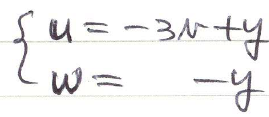 u = -3v + y
w = -y